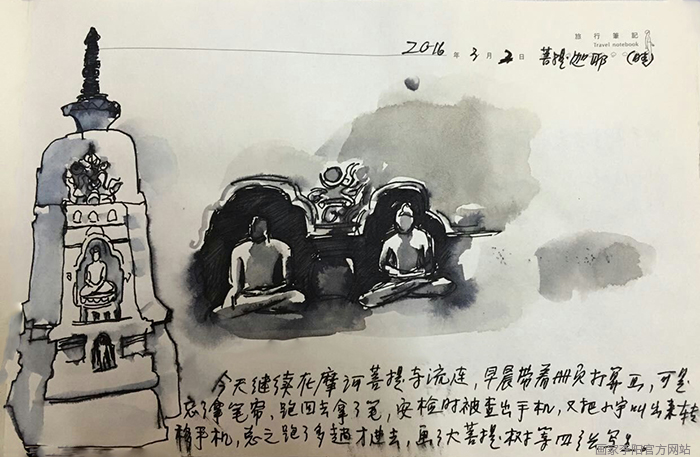 旅行筆記
Travel notebook
2016 年 3 月 2 日 菩提迦耶 (晴)
今天继续在摩诃菩提寺流连，早晨带着册页打算画，可是
忘拿笔帘、跑回去拿了笔，安检时被查出手机，又把小宇叫出来转
移手机，总之跑了多趟才进去，画了大菩提树等四张写
畫家李阳官方网站